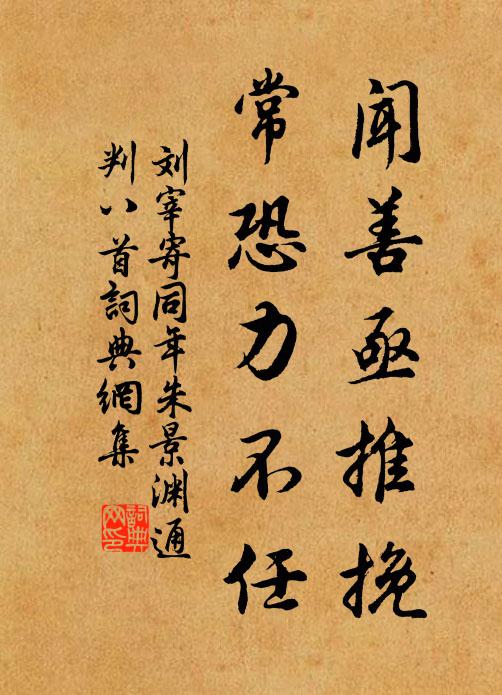 闻善亟推挽
常恐力不任
刘宰寄同年朱景渊通
判八首詞典網集
詞典
网印